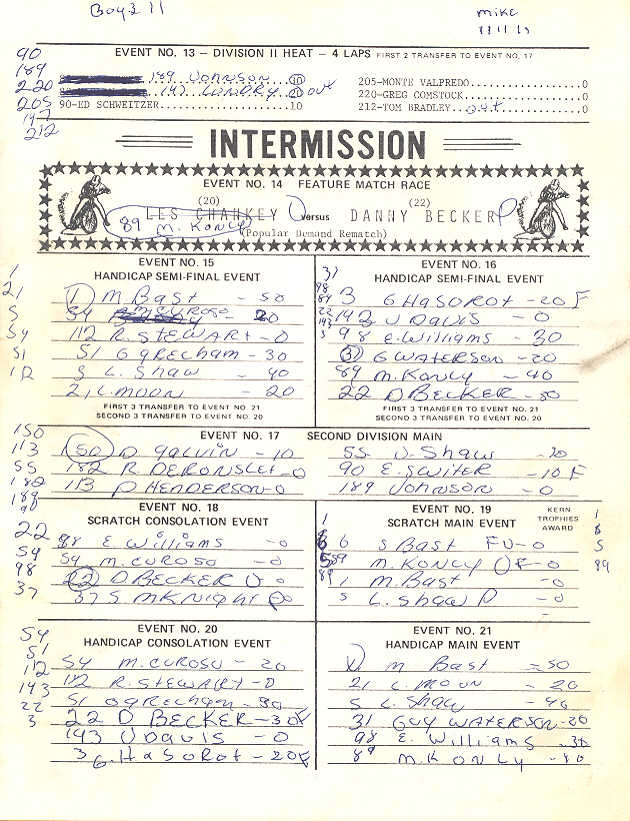 Boys 11
mike
EVENT NO. 13 – DIVISION II HEAT – 4 LAPS FIRST 2 TRANSFER TO EVENT NO. 17
90
189
220
205
147
212
189 JOHNSON 10
147 LANDRY 20 OUT
90-ED SCHWEITZER 10
205-MONTE VALPREDO 0
220-GREG COMSTOCK 0
212-TOM BRADLEY OUT 0
INTERMISSION
EVENT NO. 14 FEATURE MATCH RACE
(20) (22)
LES CHAHKEY versus DANNY BECKER
89 M. KONLY
(Popular Demand Rematch)
EVENT NO. 15
HANDICAP SEMI-FINAL EVENT
1
21
5
54
51
112
1 M BAST - 50
54 M CUROSO 20
112 R. STEWART - 0
51 G GRECHAM - 30
5 L. SHAW - 40
21 L. MOON - 20
FIRST 3 TRANSFER TO EVENT NO. 21
SECOND 3 TRANSFER TO EVENT NO. 20
EVENT NO. 16
HANDICAP SEMI-FINAL EVENT
31
98
89
22
143
3
3 GHASOROT - 20 F
143 J DAVIS - 0
98 E. Williams - 30
31 G WATERSON - 20
89 M. KONLY - 40
22 D BECKER - 30
FIRST 3 TRANSFER TO EVENT NO. 21
SECOND 3 TRANSFER TO EVENT NO. 20
EVENT NO. 17 SECOND DIVISION MAIN
150
113
55
182
189
90
150 D GALVIN - 10
182 R DERONSLET - 0
113 D HENDERSON - 0
55 J. SHAW - 20
90 E. SWITER - 10 F
189 JOHNSON - 0
EVENT NO. 18
SCRATCH CONSOLATION EVENT
22
54
98
37
98 E Williams - 0
54 M. CUROSO - 0
22 D BECKER - 0
37 S. MKNIGHT - 0
EVENT NO. 19
SCRATCH MAIN EVENT
KERN
TROPHIES
AWARD
1
6
5
89
1
6
5
89
6 S BAST FU - 0
89 M. KONLY F - 0
1 M. BAST - 0
5 L. SHAW - 0
EVENT NO. 20
HANDICAP CONSOLATION EVENT
54
51
112
143
22
3
54 M. CUROSO - 20
112 R. STEWART - 0
51 G GRECHAM - 30
22 D BECKER - 30 F
143 J DAVIS - 0
3 G. HASOROT - 20 F
EVENT NO. 21
HANDICAP MAIN EVENT
1 M BAST - 50
21 L. MOON - 20
5 L. SHAW - 40
31 GUY WATERSON - 20
98 E. Williams - 30
89 M. KONLY - 40